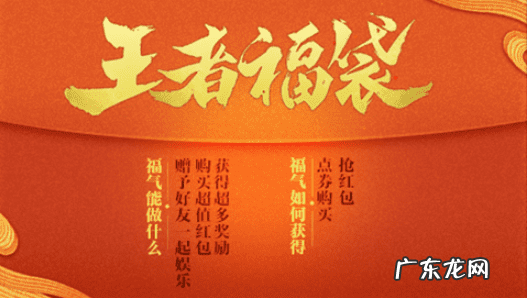 王者福袋
福气如何获得
点券购买
抢红包
福气能做什么
赠予好友一起娱乐
购买超值红包
获得超多奖励
广东龙网